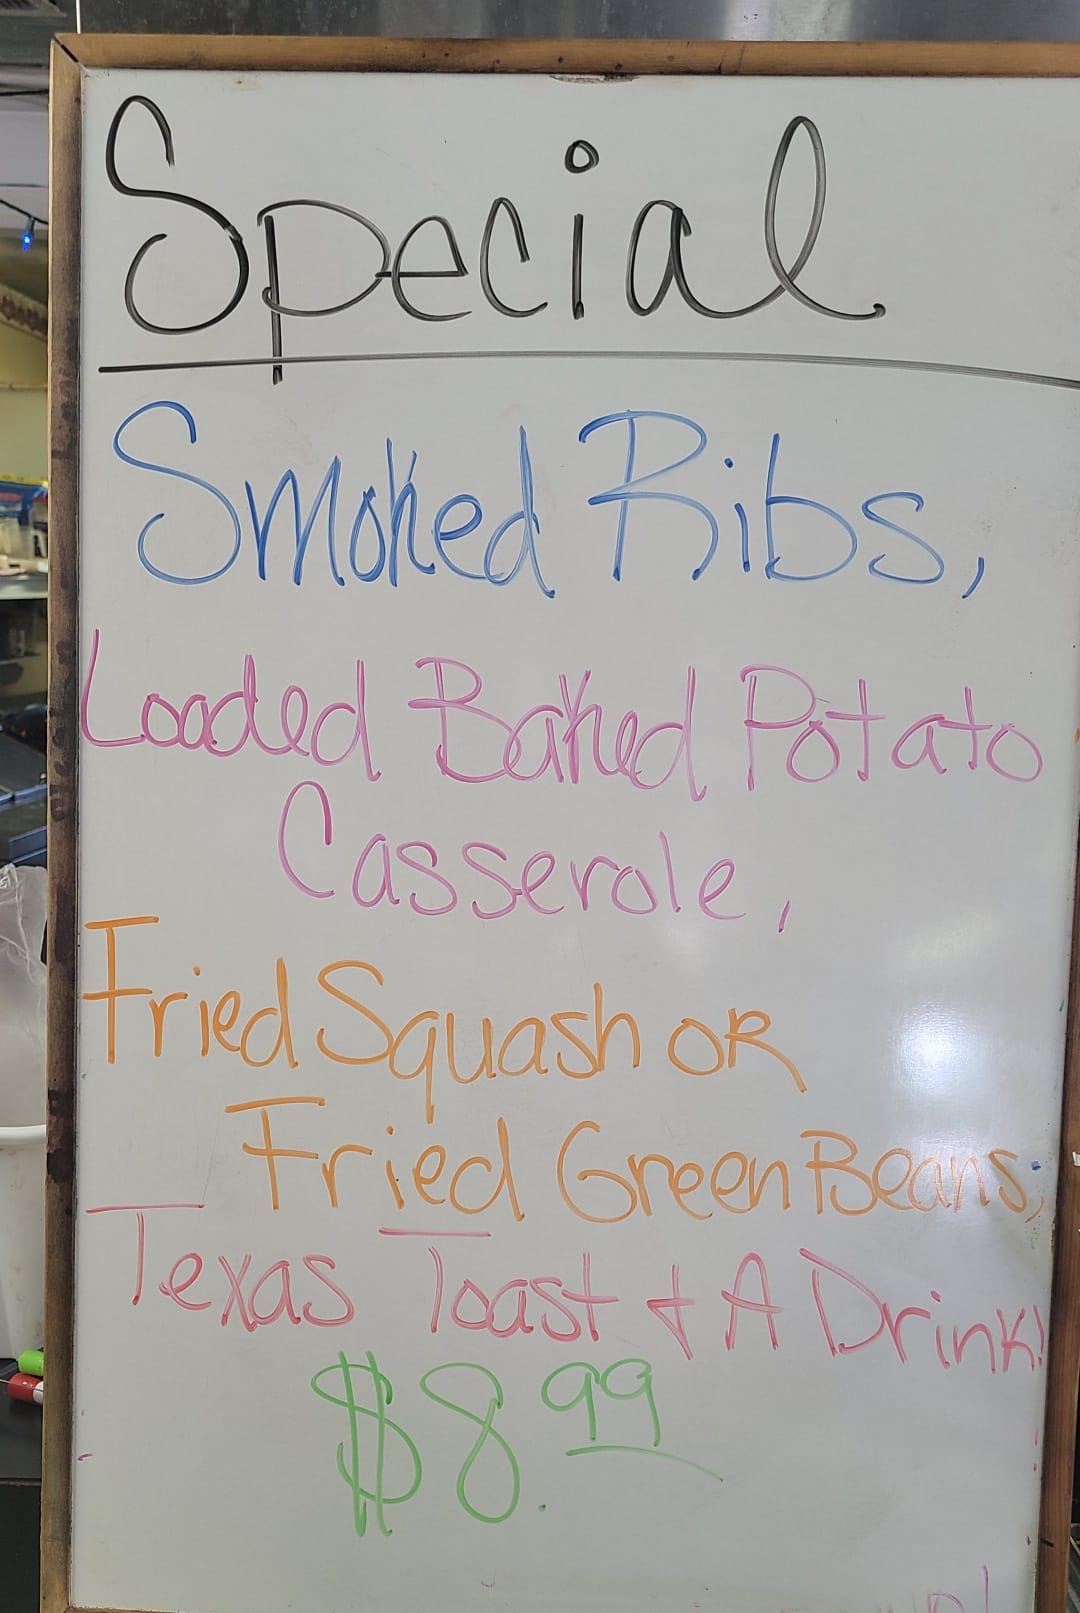 Special
Smoked Ribs,
Loaded Baked Potato
Casserole,
Fried Squash OR
Fried Green Beans,
Texas Toast & A Drink!
$8.99